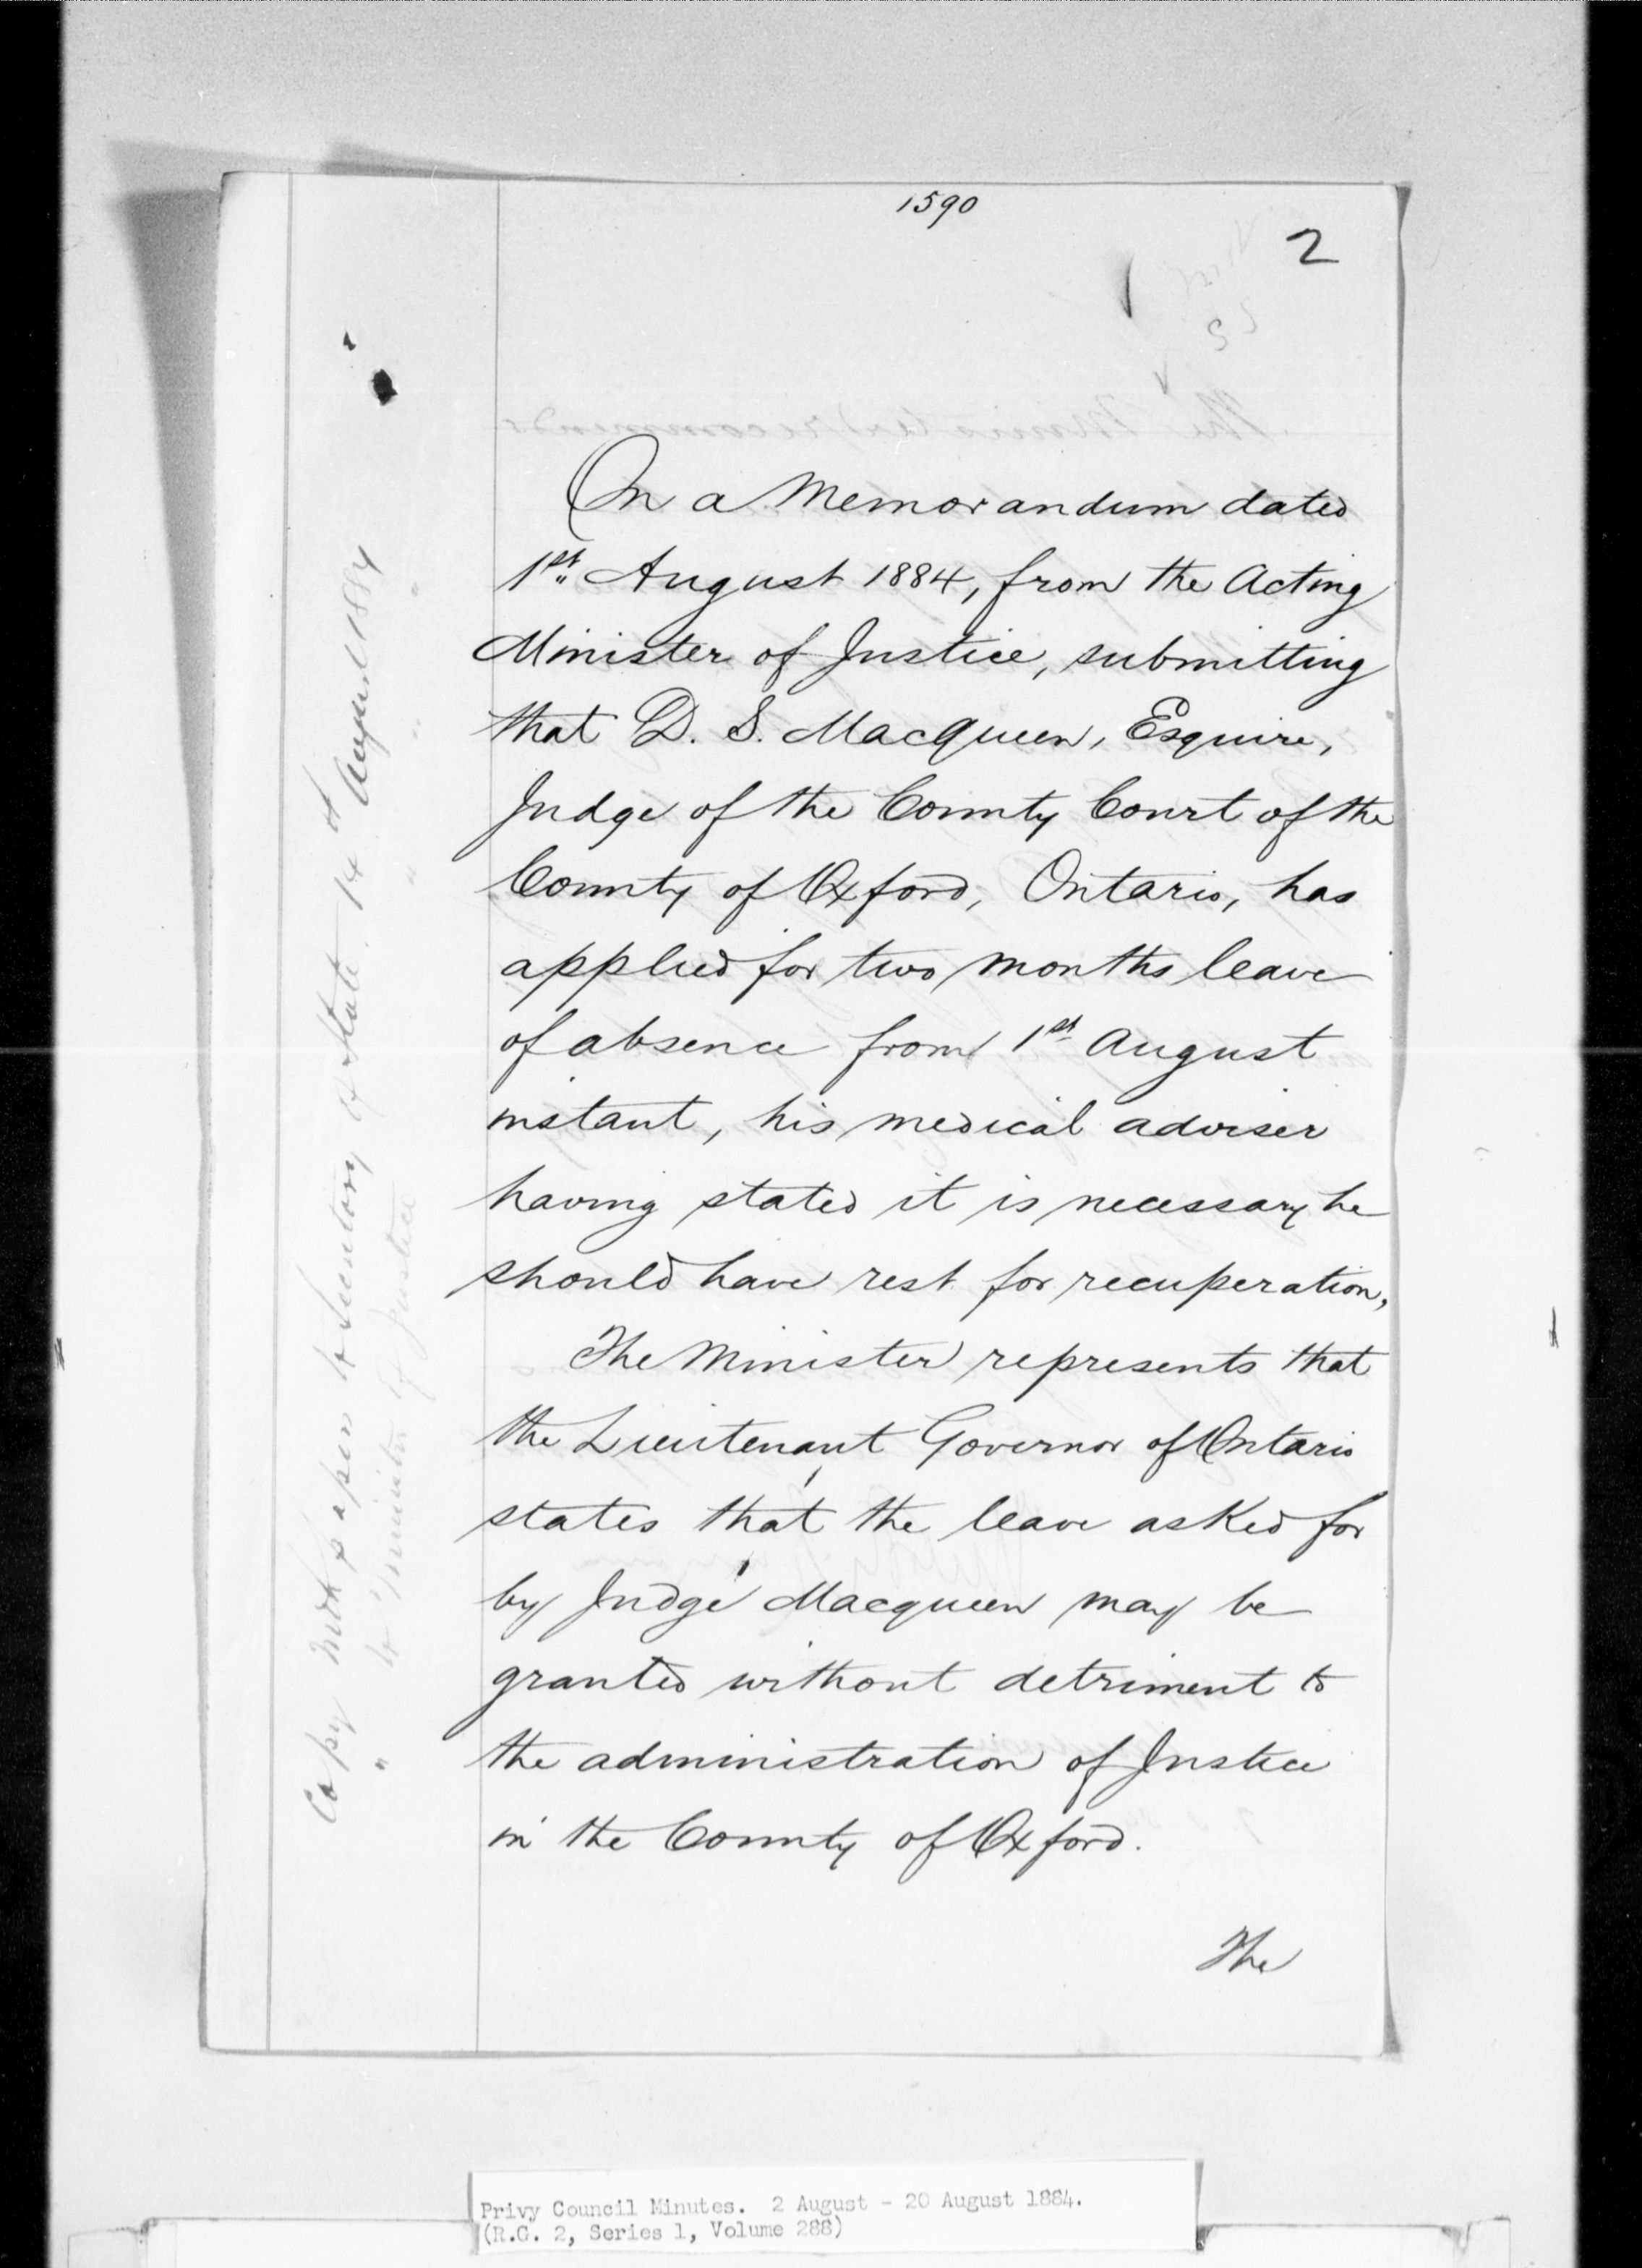 1590
2
On a Memorandum dated
1st August 1884, from the Acting
Minister of Justice, submitting
that D. S. MacQueen, Esquire,
Judge of the County Court of the
County of Oxford, Ontario, has
applied for two months leave
of absence from 1st August
instant, his medical adviser
having stated it is necessary he
should have rest for recuperation,
The Minister represents that
the Lieutenant Governor of Ontario
states that the leave asked for
by Judge Macqueen may be
granted without detriment to
the administration of Justice
in the County of Oxford.
The
Copy with papers to Secretary of State 14th August 1884
" to Minister of Justice " " "
Privy Council Minutes. 2 August - 20 August 1884.
(R.G. 2, Series 1, Volume 288)